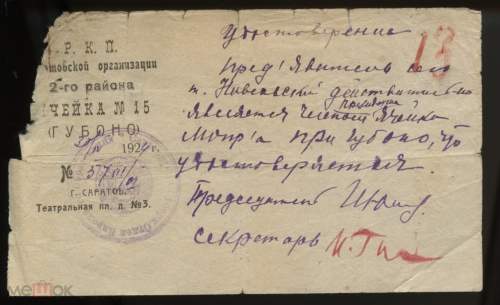 Р. К. П.
товской организации
2-го района
ЧЕЙКА № 15
(ГУБОНО)
1924 г.
№
Г. САРАТОВ
Театральная пл. д. №3.
Удостоверение
13
Пред'явитель сего
т. действительно
является членом ячейки
Мопр'а при Губоно, что
удостоверяется.
Председатель
секретарь